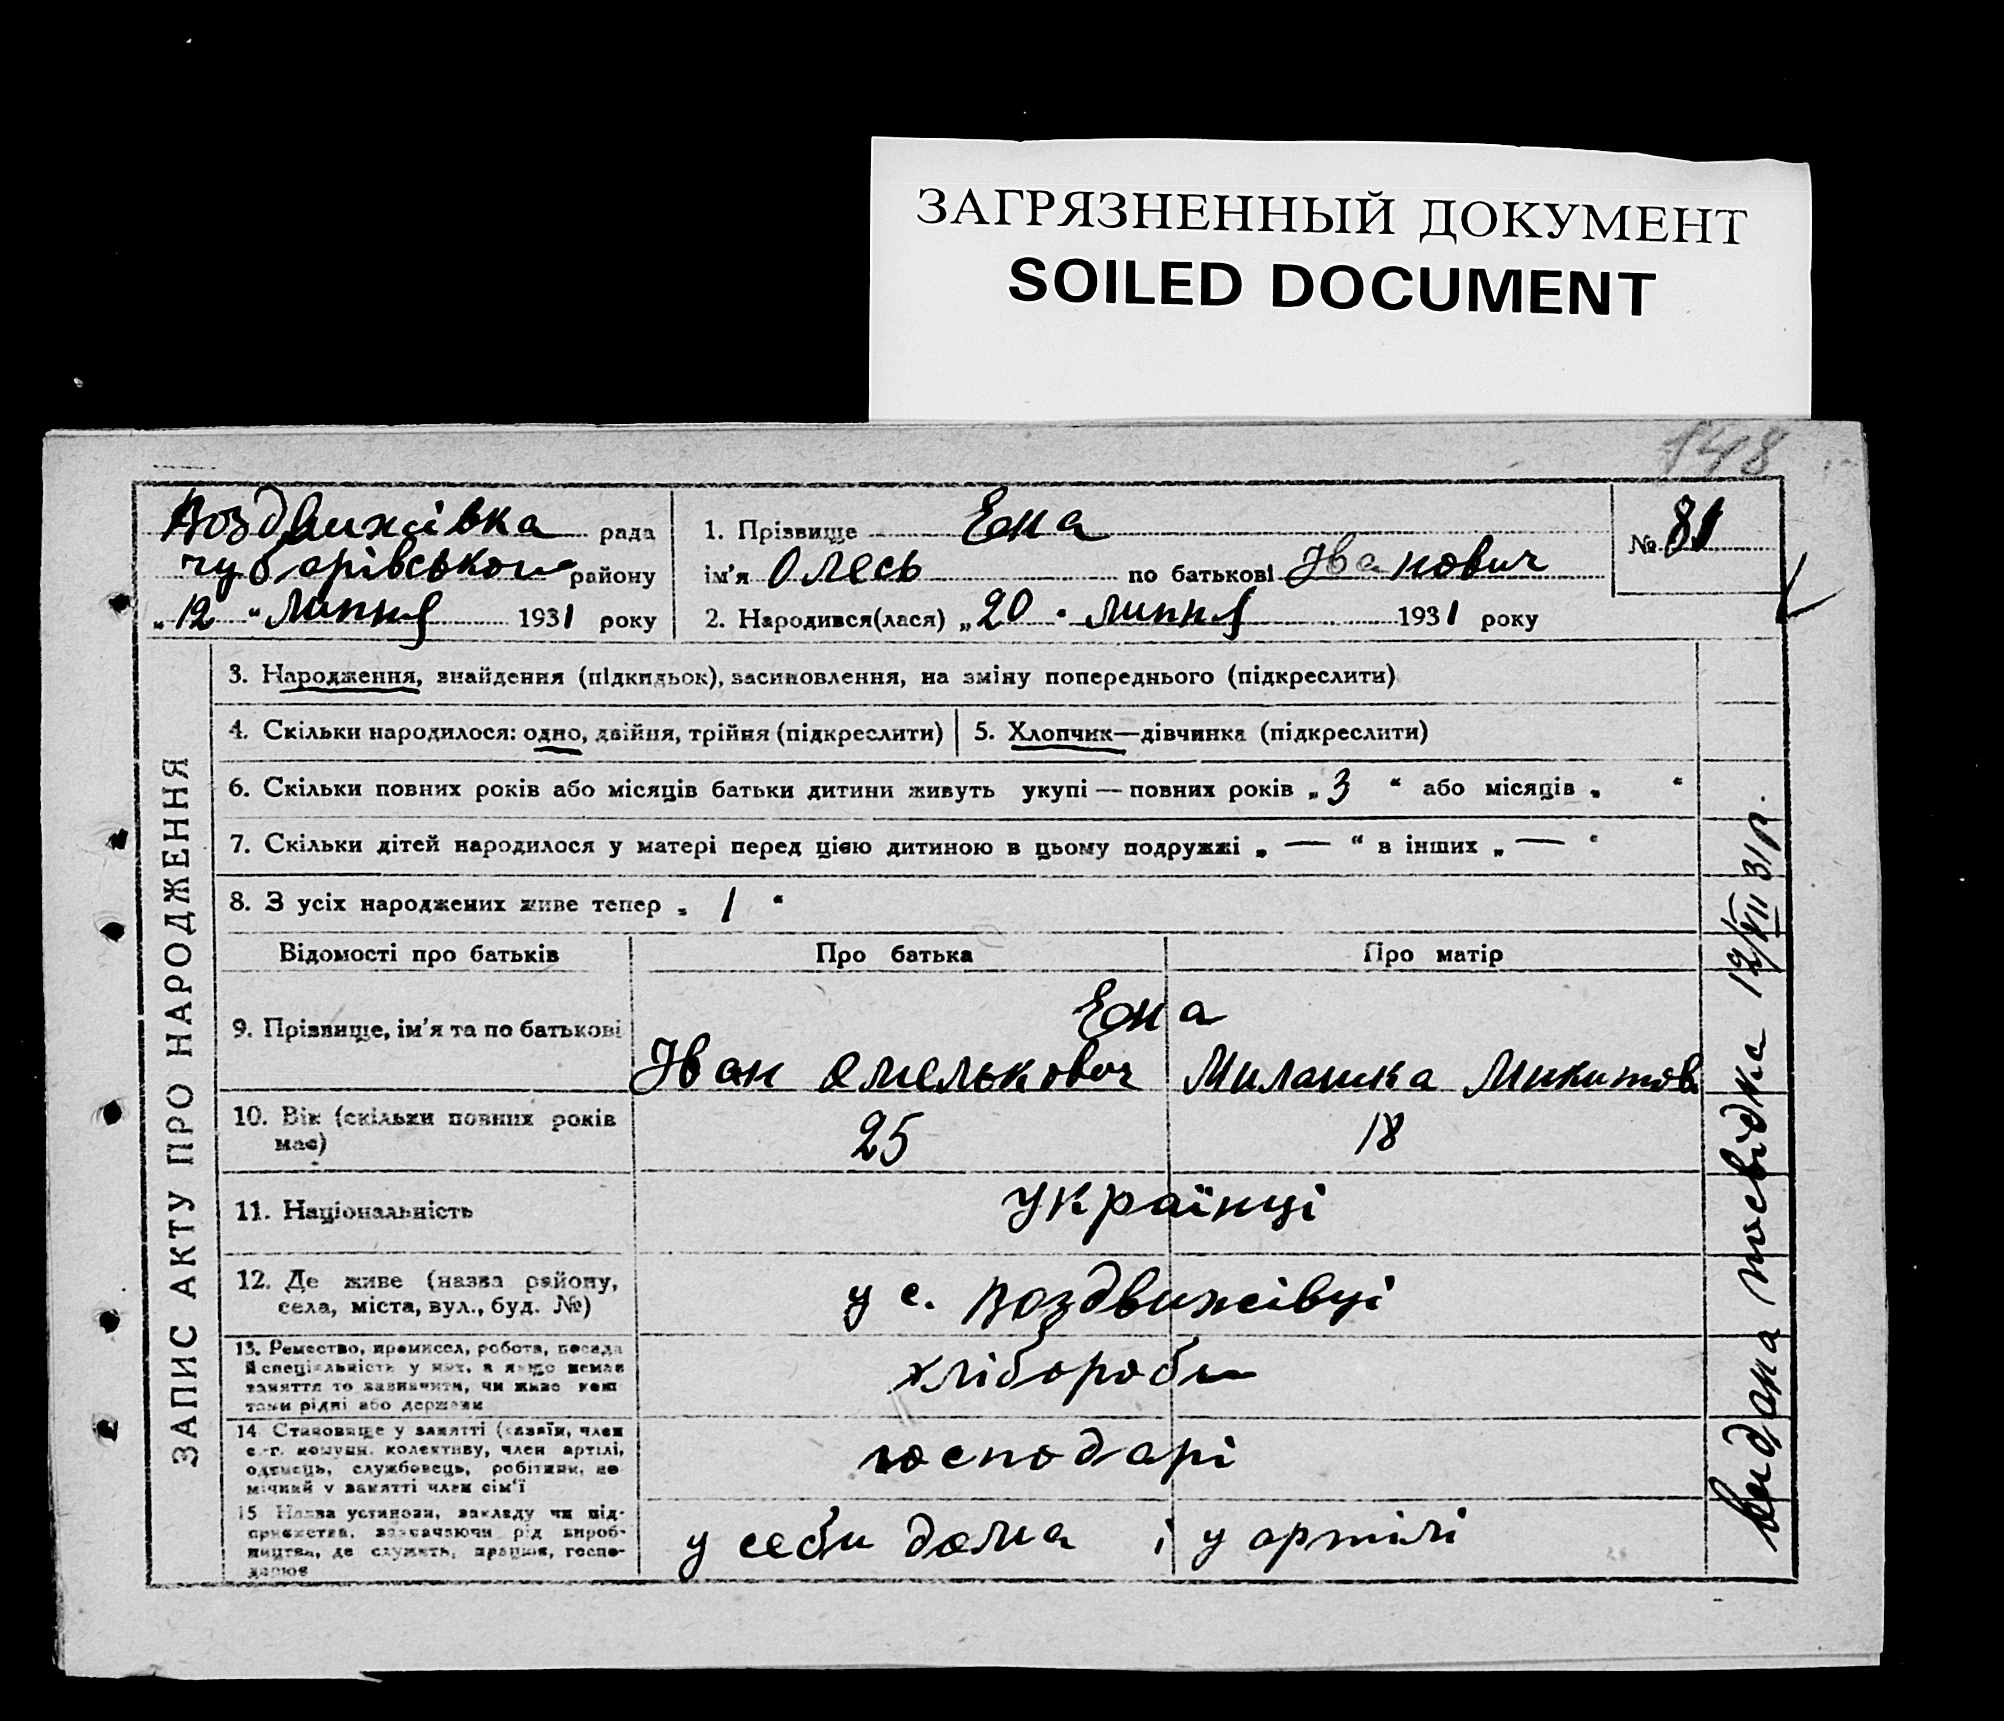 ЗАГРЯЗНЕННЫЙ ДОКУМЕНТ
SOILED DOCUMENT
148
Воздвижівка рада
чубарівського району
„12“ липня 1931 року
1. Прізвище Єна
ім'я Олесь по батькові Іванович
2. Народився(лася) „20“ липня 1931 року
№ 81
ЗАПИС АКТУ ПРО НАРОДЖЕННЯ
3. Народження, знайдення (підкидьок), засиновлення, на зміну попереднього (підкреслити)
4. Скільки народилося: одно, двійня, трійня (підкреслити)
5. Хлопчик—дівчинка (підкреслити)
6. Скільки повних років або місяців батьки дитини живуть укупі — повних років „3“ або місяців „ “
7. Скільки дітей народилося у матері перед цією дитиною в цьому подружжі „—“ в інших „—“
8. З усіх народжених живе тепер „1“
Відомості про батьків
Про батька
Про матір
9. Прізвище, ім'я та по батькові
Єна
Іван Омелькович
Милашка Микитов
10. Вік (скільки повних років
має)
25
18
11. Національність
українці
12. Де живе (назва району,
села, міста, вул., буд. №)
у с. Воздвижівці
13. Ремество, промисел, робота, посада
й спеціяльність у них, а якщо немає
заняття то зазначити, чи живе кош
тами рідні або держави
хлібороби
14 Становище у занятті (хазяїн, член
с.-г. комуни, колективу, член артілі,
одинець, службовець, робітник, по
мічний у занятті член сім'ї
господарі
15 Назва установи, закладу чи під-
приємства, зазначаючи рід вироб-
ництва, де служить, працює, госпо-
дарює
у себи дома і у артілі
видана посвідка 12/VII 31 р.